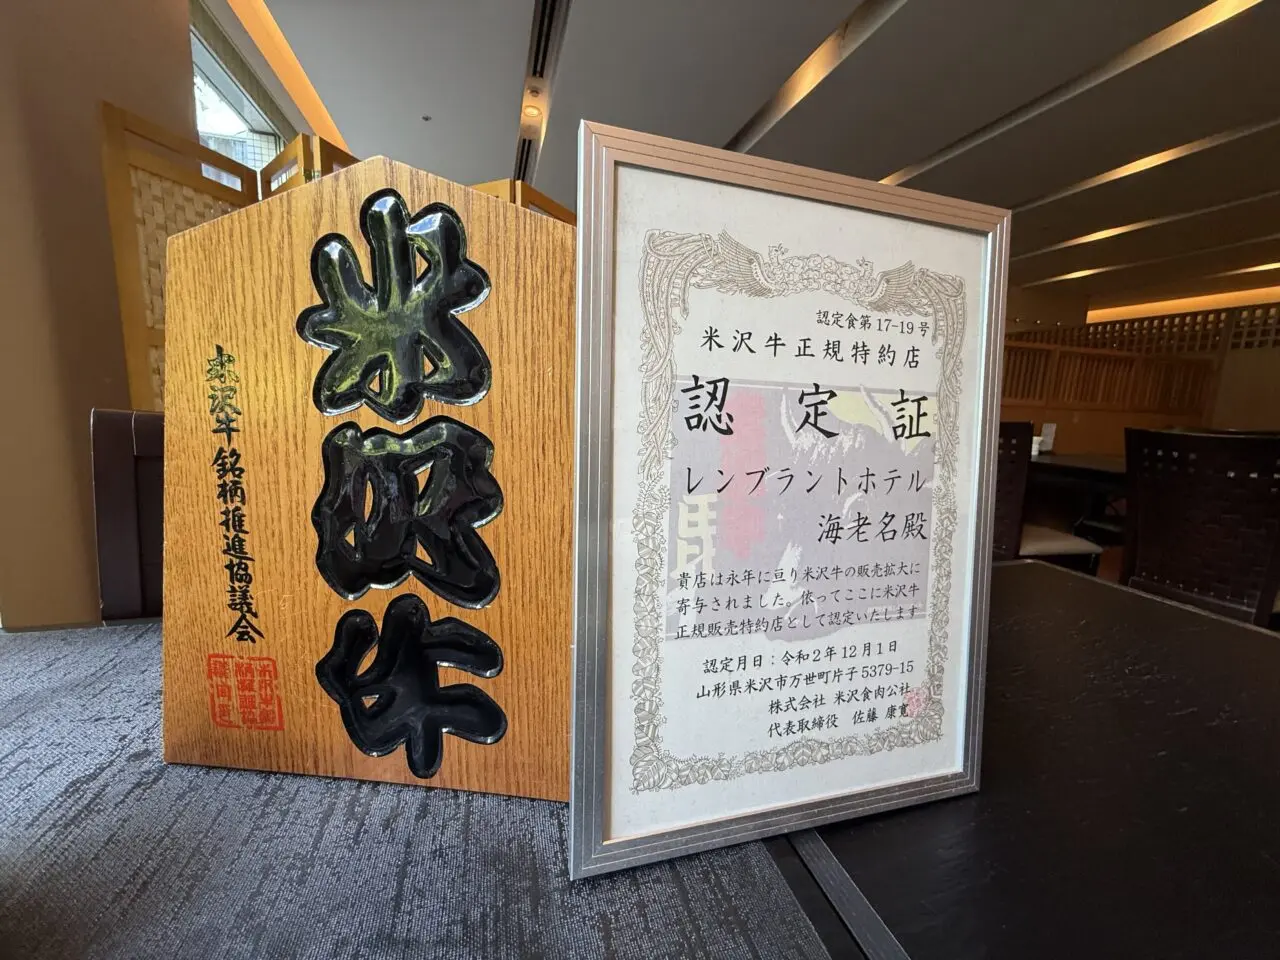 米沢牛
米沢牛銘柄推進協議会
認定食第17-19号
米沢牛正規特約店
認定証
レンブラントホテル
海老名殿
貴店は永年に亘り米沢牛の販売拡大に
寄与されました。依ってここに米沢牛
正規販売特約店として認定いたします
認定月日：令和2年12月1日
山形県米沢市万世町片子5379-15
株式会社 米沢食肉公社
代表取締役 佐藤 康寛